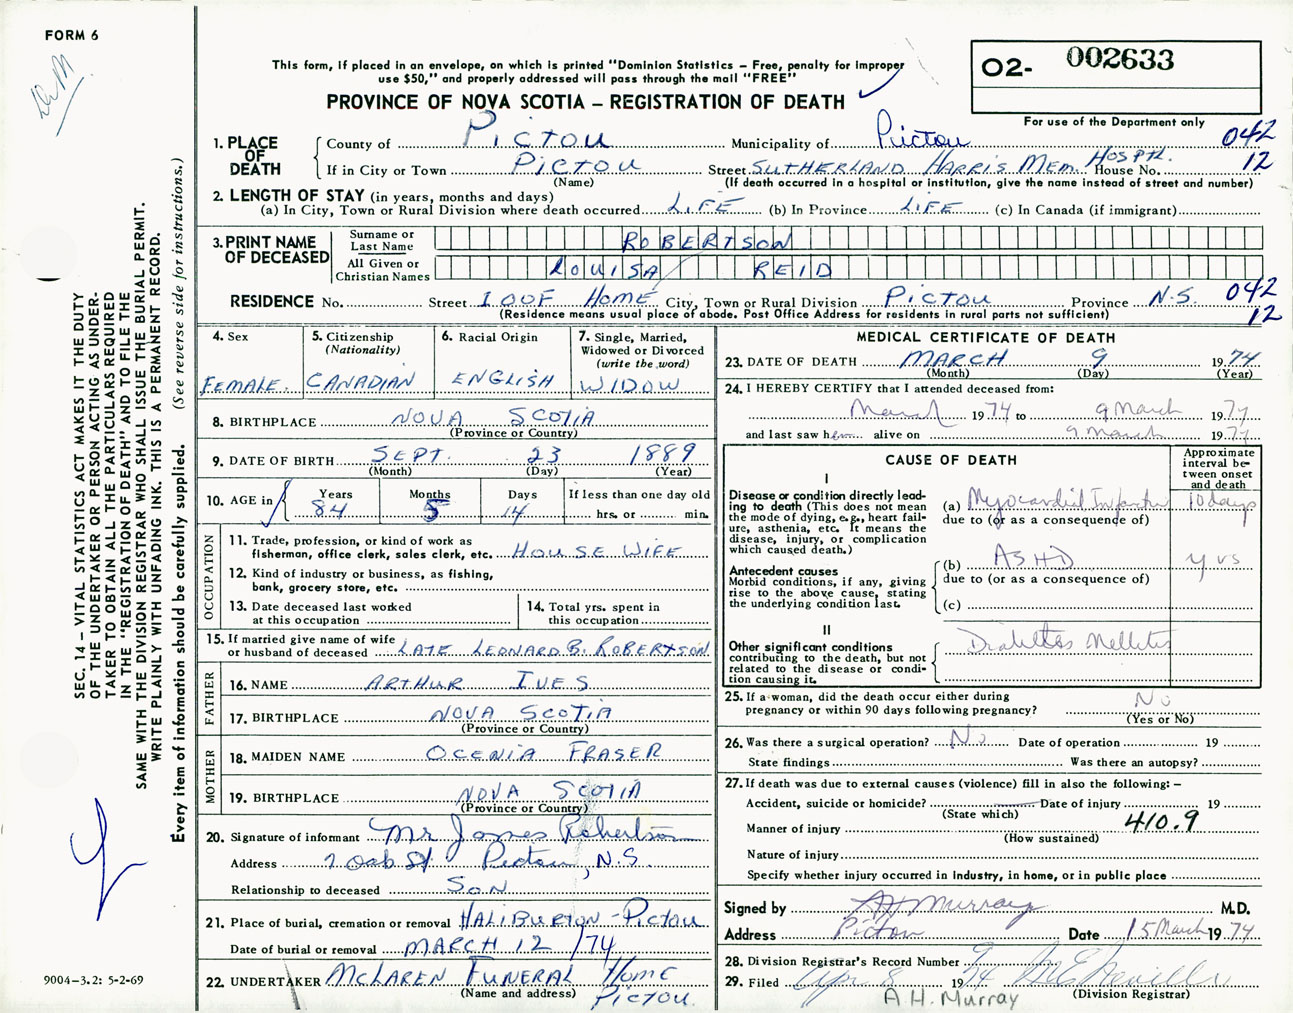 FORM 6
This form, if placed in an envelope, on which is printed "Dominion Statistics – Free, penalty for improper
use $50," and properly addressed will pass through the mail "FREE"
PROVINCE OF NOVA SCOTIA – REGISTRATION OF DEATH
O2- 002633
For use of the Department only
1. PLACE OF DEATH
County of PICTOU Municipality of Pictou 042
If in City or Town PICTOU Street SUTHERLAND HARRIS MEM. HOSPTL. House No. 12
(Name) (If death occurred in a hospital or institution, give the name instead of street and number)
2. LENGTH OF STAY (in years, months and days)
(a) In City, Town or Rural Division where death occurred LIFE (b) In Province LIFE (c) In Canada (if immigrant)
3. PRINT NAME OF DECEASED
Surname or Last Name ROBERTSON
All Given or Christian Names LOUISA REID
RESIDENCE No. Street I.OOF HOME City, Town or Rural Division PICTOU Province N.S. 042
(Residence means usual place of abode. Post Office Address for residents in rural parts not sufficient) 12
4. Sex FEMALE.
5. Citizenship (Nationality) CANADIAN
6. Racial Origin ENGLISH
7. Single, Married, Widowed or Divorced (write the word) WIDOW
8. BIRTHPLACE NOVA SCOTIA
(Province or Country)
9. DATE OF BIRTH SEPT. 23 1889
(Month) (Day) (Year)
10. AGE in Years 84 Months 5 Days 14 If less than one day old hrs. or min.
OCCUPATION
11. Trade, profession, or kind of work as
fisherman, office clerk, sales clerk, etc. HOUSEWIFE
12. Kind of industry or business, as fishing,
bank, grocery store, etc.
13. Date deceased last worked at this occupation
14. Total yrs. spent in this occupation
15. If married give name of wife
or husband of deceased LATE LEONARD B. ROBERTSON
FATHER
16. NAME ARTHUR IVES
17. BIRTHPLACE NOVA SCOTIA
(Province or Country)
MOTHER
18. MAIDEN NAME OCENIA FRASER
19. BIRTHPLACE NOVA SCOTIA
(Province or Country)
20. Signature of informant Mr James Robertson
Address 7 Oak St Pictou, N.S.
Relationship to deceased SON
21. Place of burial, cremation or removal HALIBURTON - PICTOU
Date of burial or removal MARCH 12 /74
22. UNDERTAKER McLAREN FUNERAL HOME
(Name and address) PICTOU.
MEDICAL CERTIFICATE OF DEATH
23. DATE OF DEATH MARCH 9 1974
(Month) (Day) (Year)
24. I HEREBY CERTIFY that I attended deceased from:
March 1974 to 9 March 1974
and last saw her alive on 9 March 1974
CAUSE OF DEATH
Approximate interval between onset and death
I
Disease or condition directly leading to death (This does not mean the mode of dying, e.g., heart failure, asthenia, etc. It means the disease, injury, or complication which caused death.)
(a) Myocardial Infarction 10 days
due to (or as a consequence of)
Antecedent causes
Morbid conditions, if any, giving rise to the above cause, stating the underlying condition last.
(b) ASHD yrs
due to (or as a consequence of)
(c)
II
Other significant conditions
contributing to the death, but not related to the disease or condition causing it.
Diabetes Mellitis
25. If a woman, did the death occur either during
pregnancy or within 90 days following pregnancy? No
(Yes or No)
26. Was there a surgical operation? No Date of operation 19
State findings Was there an autopsy?
27. If death was due to external causes (violence) fill in also the following: –
Accident, suicide or homicide? Date of injury 19
(State which)
Manner of injury 410.9
(How sustained)
Nature of injury
Specify whether injury occurred in industry, in home, or in public place
Signed by AH Murray M.D.
Address Pictou Date 15 March 1974
28. Division Registrar's Record Number 9
29. Filed Apr 8 1974
(Division Registrar)
A.H. Murray
SEC. 14 – VITAL STATISTICS ACT MAKES IT THE DUTY
OF THE UNDERTAKER OR PERSON ACTING AS UNDER-
TAKER TO OBTAIN ALL THE PARTICULARS REQUIRED
IN THE "REGISTRATION OF DEATH" AND TO FILE THE
SAME WITH THE DIVISION REGISTRAR WHO SHALL ISSUE THE BURIAL PERMIT.
WRITE PLAINLY WITH UNFADING INK. THIS IS A PERMANENT RECORD.
Every item of information should be carefully supplied. (See reverse side for instructions.)
9004-3.2: 5-2-69